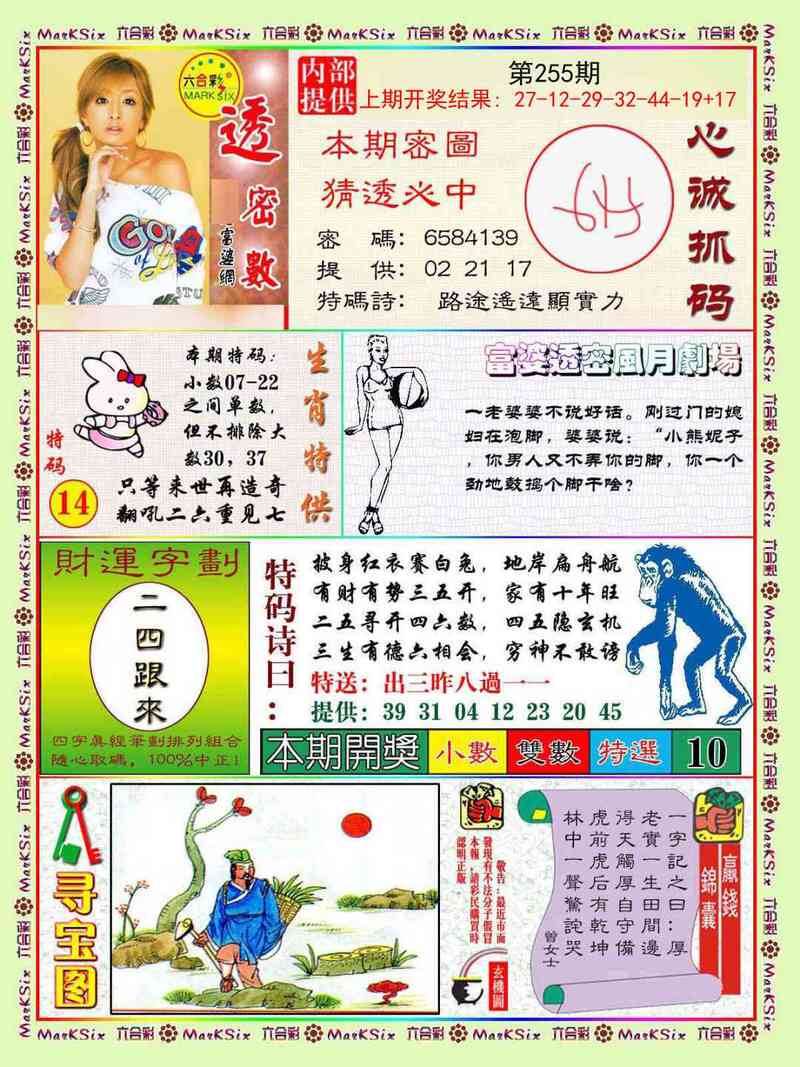 六合彩
MARK SIX
透密數
富婆網
内部提供
第255期
上期开奖结果：27-12-29-32-44-19+17
本期密圖
猜透必中
密 碼: 6584139
提 供: 02 21 17
特碼詩: 路途遙遠顯實力
心诚抓码
本期特码:
小数07-22
之间单数,
但不排除大
数30, 37
只等来世再造奇
翻吼二六重见七
特码
14
生肖特供
富婆透密風月劇場
一老婆婆不说好话。刚过门的媳
妇在泡脚，婆婆说：“小熊妮子
，你男人又不弄你的脚，你一个
劲地鼓捣个脚干啥?
財運字劃
二四跟來
四字真經筆劃排列組合
隨心取碼, 100%中正!
特码诗曰:
披身红衣赛白兔, 地岸扁舟航
有财有势三五开, 家有十年旺
二五寻开四六数, 四五隐玄机
三生有德六相会, 穷神不敢谤
特送: 出三昨八過一一
提供: 39 31 04 12 23 20 45
本期開獎 小數 雙數 特選 10
寻宝图
敬告:最近市面
發現有不法分子假冒
本報,請彩民購買時
認明正版。
玄機圖
贏錢
錦囊
一字記之曰:厚
老實一生田間邊
得天觸厚自守備
虎前虎后有乾坤
林中一聲驚詫哭
曾女士
六合彩 MarKSix 六合彩 MarKSix 六合彩 MarKSix 六合彩 MarKSix 六合彩 MarKSix